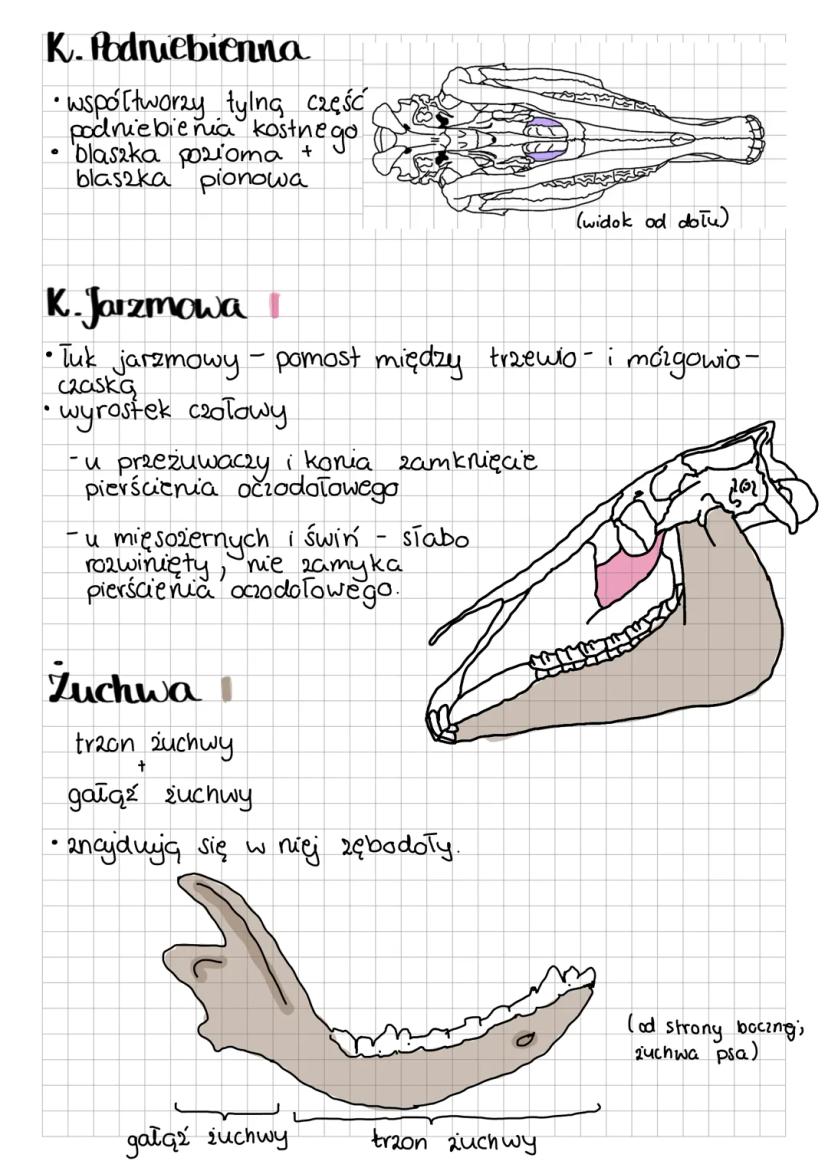 K. Podniebienna
• współtworzy tylną część
podniebienia kostnego
• blaszka pozioma +
blaszka pionowa
(widok od dołu)
K. Jarzmowa
• Łuk jarzmowy – pomost między trzewio- i mózgowio-
czaską
• wyrostek czołowy
- u przeżuwaczy i konia zamknięcie
pierścienia oczodołowego
- u mięsożernych i świń - słabo
rozwinięty, nie zamyka
pierścienia oczodołowego.
Żuchwa
trzon żuchwy
+
gałąź żuchwy
• znajdują się w niej zębodoły.
(od strony bocznej,
żuchwa psa)
gałąź żuchwy
trzon żuchwy